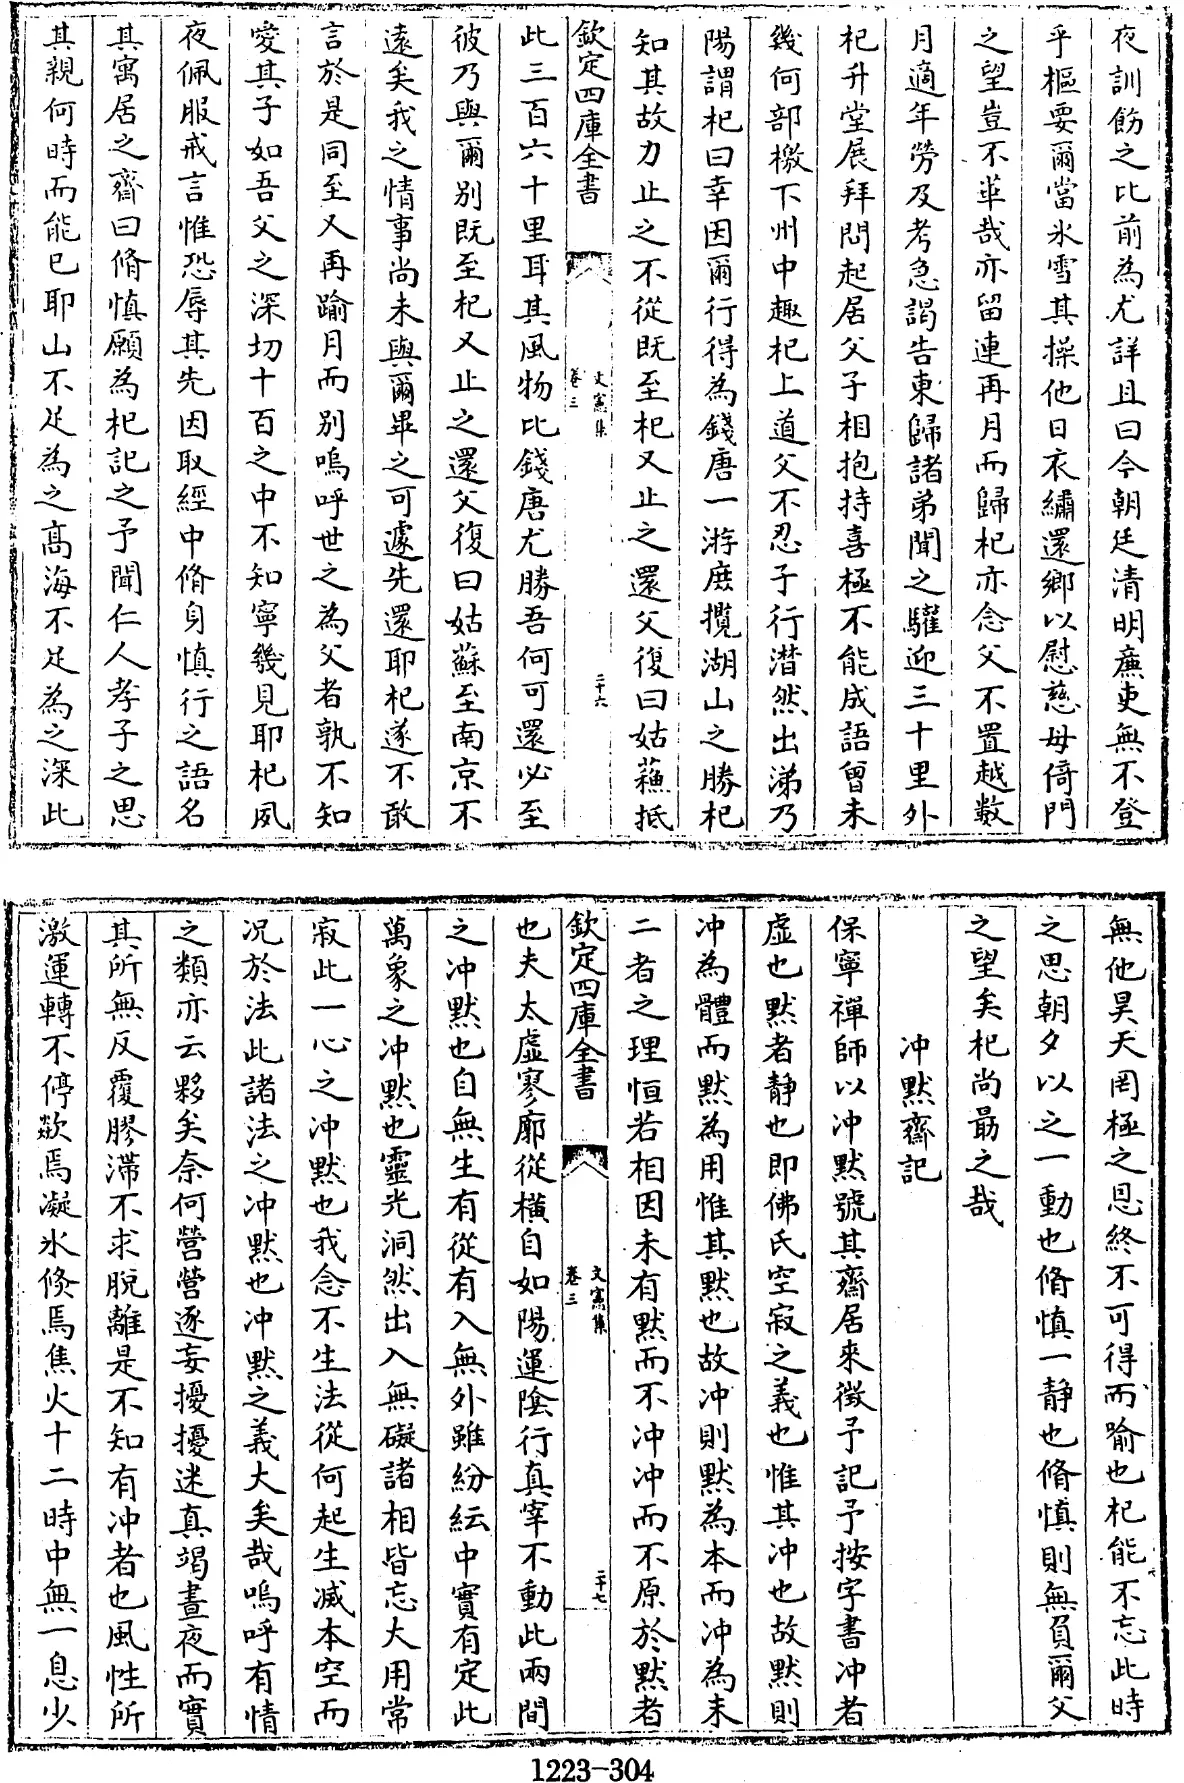 夜訓飭之比前為尤詳且曰今朝廷清明廉吏無不登
乎樞要爾當氷雪其操他日衣繡還鄉以慰慈母倚門
之望豈不華哉亦留連再月而歸杞亦念父不置越數
月適年勞及考急謁告東歸諸弟聞之驩迎三十里外
杞升堂展拜問起居父子相抱持喜極不能成語曾未
幾何部檄下州中趣杞上道父不忍子行潸然出涕乃
陽謂杞曰幸因爾行得為錢唐一游庶攬湖山之勝杞
知其故力止之不從既至杞又止之還父復曰姑蘓抵
欽定四庫全書
文憲集
卷三
二十六
此三百六十里耳其風物比錢唐尤勝吾何可還必至
彼乃與爾別既至杞又止之還父復曰姑蘇至南京不
遠矣我之情事尚未與爾畢之可遽先還耶杞遂不敢
言於是同至又再踰月而別嗚呼世之為父者孰不知
愛其子如吾父之深切十百之中不知寧幾見耶杞夙
夜佩服戒言惟恐辱其先因取經中脩身慎行之語名
其寓居之齋曰脩慎願為杞記之予聞仁人孝子之思
其親何時而能已耶山不足為之高海不足為之深此
無他昊天罔極之恩終不可得而喻也杞能不忘此時
之思朝夕以之一動也脩慎一靜也脩慎則無負爾父
之望矣杞尚勗之哉
冲黙齋記
保寧禪師以冲黙號其齋居來徴予記予按字書冲者
虛也黙者靜也即佛氏空寂之義也惟其冲也故黙則
冲為體而黙為用惟其黙也故冲則黙為本而冲為末
二者之理恒若相因未有黙而不冲冲而不原於黙者
欽定四庫全書
文憲集
卷三
二十七
也夫太虛寥廓從橫自如陽運陰行真宰不動此兩間
之冲黙也自無生有從有入無外雖紛紜中實有定此
萬象之冲黙也靈光洞然出入無礙諸相皆忘大用常
寂此一心之冲黙也我念不生法從何起生減本空而
况於法此諸法之冲黙也冲黙之義大矣哉嗚呼有情
之類亦云夥矣奈何營營逐妄擾擾迷真竭晝夜而實
其所無反覆膠滯不求脫離是不知有冲者也風性所
激運轉不停歘焉凝氷倐焉焦火十二時中無一息少
1223-304